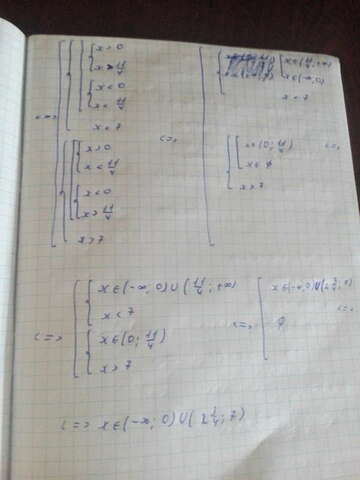 x > 0
x > 11/4
x < 0
x < 11/4
x < 7
<=>
x > 0
x < 11/4
x < 0
x > 11/4
x > 7
<=>
x ∈ (11/4; +∞)
x ∈ (-∞; 0)
x < 7
x ∈ (0; 11/4)
x ∈ ∅
x > 7
<=>
<=>
x ∈ (-∞; 0) ∪ (11/4; +∞)
x < 7
x ∈ (0; 11/4)
x > 7
<=>
∅
<=>
<=> x ∈ (-∞; 0) ∪ (2 3/4; 7)